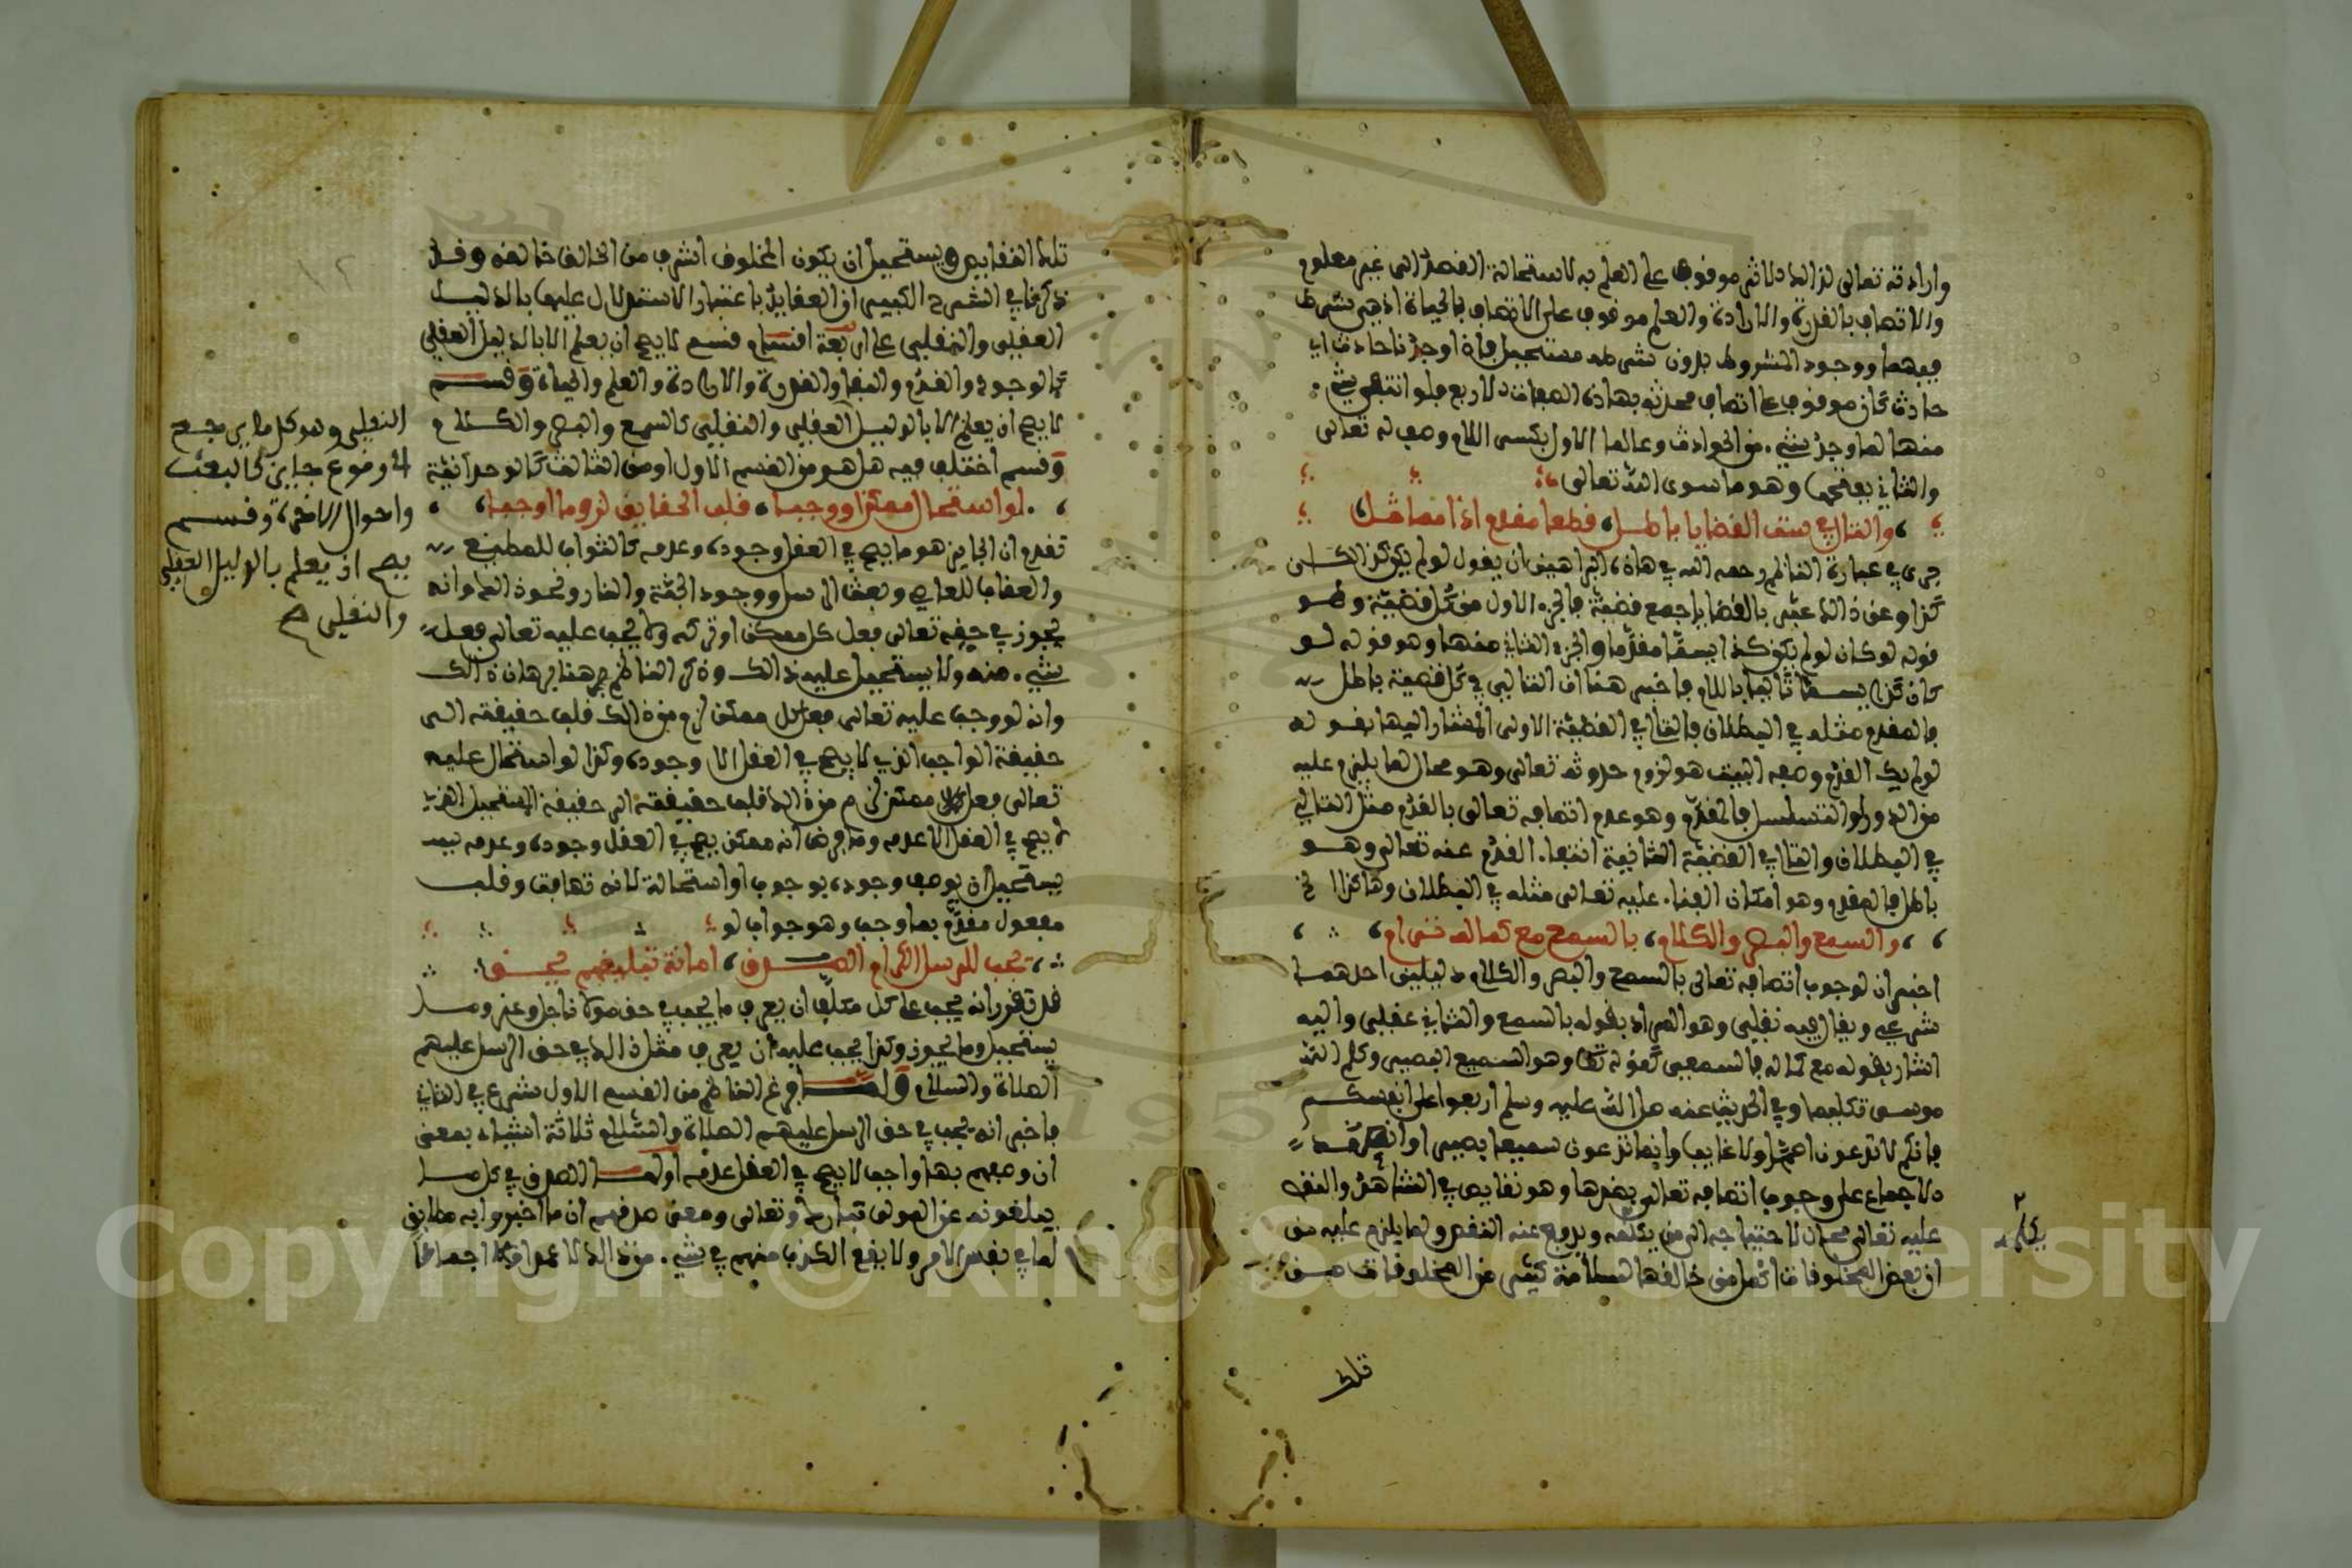 وارادته تعالى لذلك الاثر موقوف على العلم به لاستحالة القصد الى غير معلوم
والاتصاف بالقدرة والارادة والعلم موقوف على الاتصاف بالحياة اذ هي شرط
فيها ووجود المشروط بدون شرطه مستحيل فاذا وجدنا حادث اي
حادث كان موقوف على اتصاف محدثه بهاذه الصفات الاربع فلو انتفى شيء
منها لما وجد شيء من الحوادث وعالما الاول بكسر اللام وصف له تعالى
والثاني بفتحها وهو ما سوى الله تعالى
والتالي في ست القضايا باطل قطعا مقدم اذا مماثل
جرى في عبارة الناظم رحمه الله في هاذه البراهين ان يقول لو لم يكن كذا لكان
كذا وعن ذالك عبر بالقضايا جمع قضية فالجزء الاول من كل قضية وهو
قوله لو كان لو لم يكن كذا يسمى مقدما والجزء الثاني منها وهو قوله لو
كان كذا يسمى تاليا باللام فاخبر هنا ان التالي في كل قضية باطل
فالمقدم مثله في البطلان فالتالي في القضية الاولى المشار اليها بقوله
لو لم يك القدم وصفه البيت هو لزوم حدوثه تعالى وهو محال لما يلزم عليه
من الدور او التسلسل فالمقدم وهو عدم اتصافه تعالى بالقدم مثل التالي
في البطلان والتالي في القضية الثانية انتفاء القدم عنه تعالى وهو
باطل فالمقدم وهو امكان الفناء عليه تعالى مثله في البطلان وهاكذا الخ
والسمع والبصر والكلام بالسمع مع كماله ترام
اخبر ان لوجوب اتصافه تعالى بالسمع والبصر والكلام دليلين احدهما
شرعي ويقال فيه نقلي وهو المراد بقوله بالسمع والثاني عقلي واليه
اشار بقوله مع كماله فالسمعي كقوله تعالى وهو السميع البصير وكلم الله
موسى تكليما وفي الحديث عنه صلى الله عليه وسلم اربعوا على انفسكم
فانكم لا تدعون اصم ولا غايبا وانما تدعون سميعا بصيرا
الاجماع على وجوب اتصافه تعالى بضدها وهو نقايص في الشاهد والنقص
عليه تعالى محال لاحتياجه الى من يكمله ويدفع عنه النقص ولما يلزم عليه من
ان بعض المخلوقات اكمل من خالقها لسلامة كثير من المخلوقات من
يكمله
تلك
تلك النقايص ويستحيل ان يكون المخلوق اشرف من الخالق خالقه وقد
ذكرنا في الشرح الكبير ان العقايد باعتبار الاستدلال عليها بالدليل
العقلي والنقلي على اربعة اقسام قسم لا يصح ان يعلم الا بالدليل العقلي
كالوجود والقدم والبقاء والقدرة والارادة والعلم والحياة وقسم
لا يصح ان يعلم الا بالدليل العقلي والنقلي كالسمع والبصر والكلام
وقسم اختلف فيه هل هو من القسم الاول او من الثالث كالوحدانية
لو استحال ممكن او وجبا قلب الحقايق لزوما اوجبا
تقدم ان الجايز هو ما يصح في العقل وجوده وعدمه كالثواب للمطيع
والعقاب للعاصي وبعث الرسل ووجود الجنة والنار ونحو ذالك وانه
يجوز في حقه تعالى فعل كل ممكن او تركه ولا يجب عليه تعالى فعل
شيء منه ولا يستحيل عليه ذالك وذكر الناظم هنا برهان ذالك
وانه لو وجب عليه تعالى فعل كل ممكن لزم من ذالك قلب حقيقته الى
حقيقة الواجب الذي لا يصح في العقل الا وجوده وكذا لو استحال عليه
تعالى فعل كل ممكن لزم من ذالك قلب حقيقته الى حقيقة المستحيل الذي
لا يصح في العقل الا عدمه وما فرضنا انه ممكن يصح في العقل وجوده وعدمه
يستحيل ان يوصف وجوده بوجوب او استحالة لانه تهافت وقلب
مفعول مقدم بما وجب وهو جواب لو
يجب للرسل الكرام الصدق امانة تبليغهم يحق
قد تقرر انه يجب على كل مكلف ان يعرف ما يجب في حق مولانا جل وعز وما
يستحيل وما يجوز وكذا يجب عليه ان يعرف مثل ذالك في حق الرسل عليهم
الصلاة والسلام ولما فرغ الناظم من القسم الاول شرع في الثاني
فاخبر انه يجب في حق الرسل عليهم الصلاة والسلام ثلاثة اشياء بمعنى
ان وصفهم بها واجب لا يصح في العقل عدمه اولها الصدق في كل ما
يبلغونه عن المولى تبارك وتعالى ومعنى صدقهم ان ما اخبروا به مطابق
لما في نفس الامر ولا يقع الكذب منهم في شيء من ذالك لا عمدا اجماعا
النقلي وهو كل ما يرجع
الى وقوع جايز كالبعث
واحوال الاخرة وقسم
يصح ان يعلم بالدليل العقلي
والنقلي صح
Copyright © King Saud University
1957